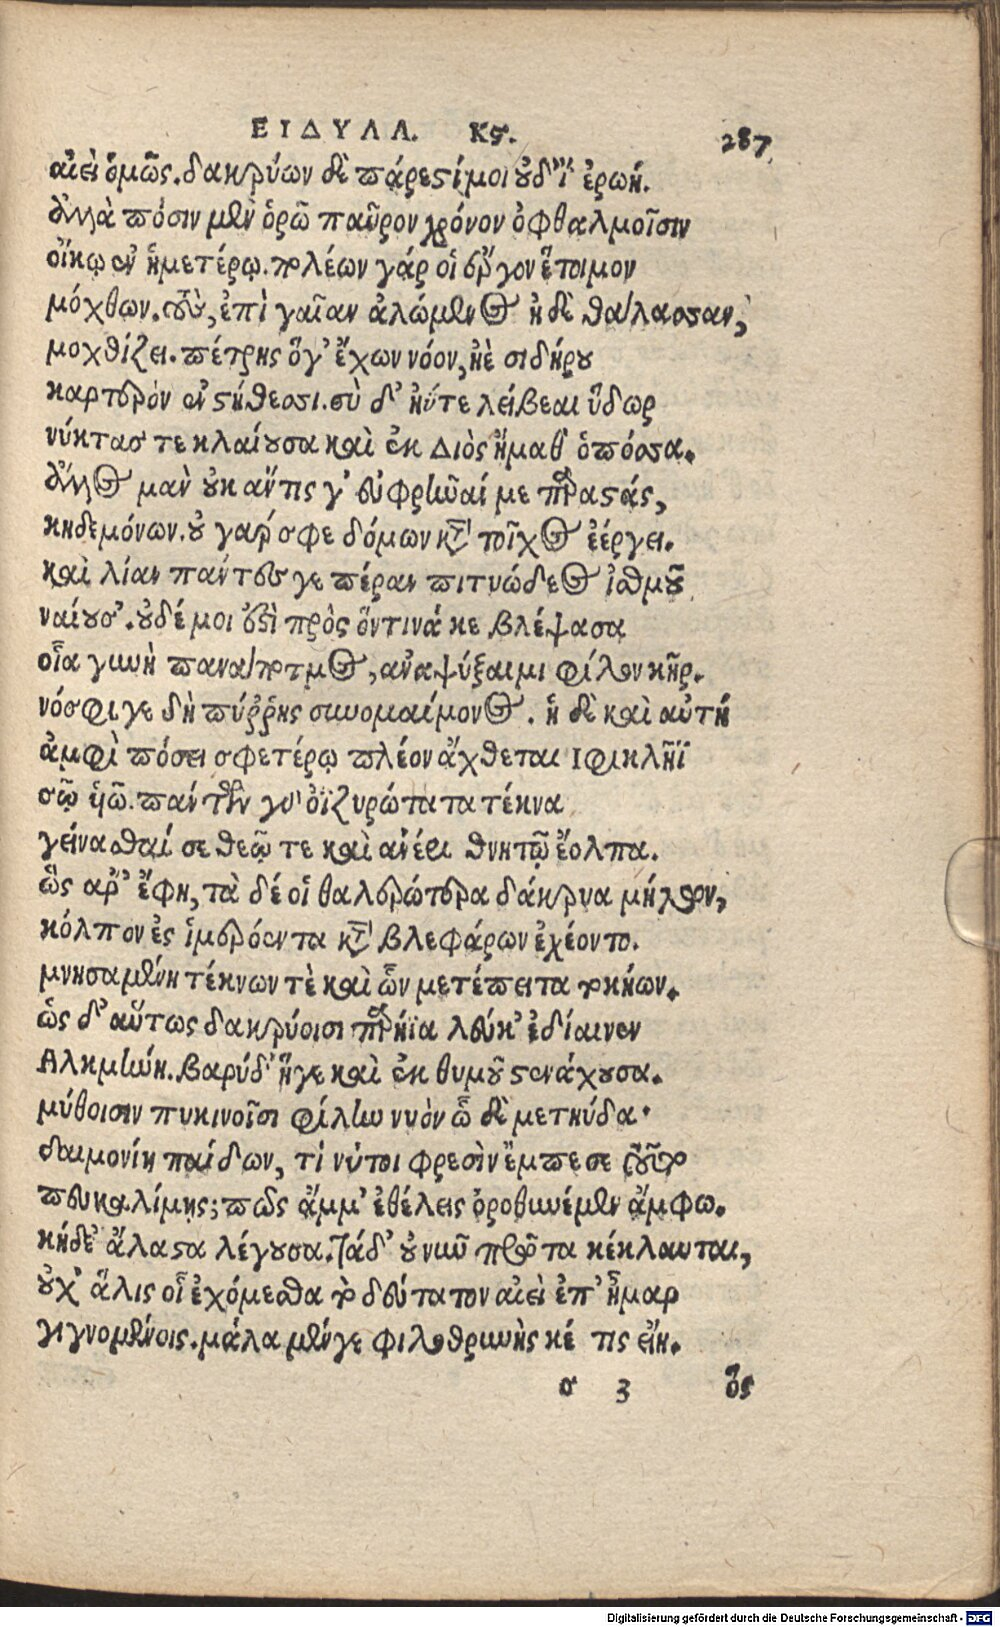 ΕΙΔΥΛΛ. Κϛ. 287
αἰεὶ ὁμῶς. δακρύων δὲ πάρεστί μοι οὐδ' ἴ ἐρωή.
ἀλλὰ πόσιν μὲν ὁρῶ παῦρον χρόνον ὀφθαλμοῖσιν
οἴκῳ ἐν ἡμετέρῳ. πολέων γάρ οἱ ἔργον ἕτοιμον
μόχθων. οὓς, ἐπὶ γαῖαν ἀλώμενος ἠδὲ θάλασσαν,
μοχθίζει. πέτρης ὅγ' ἔχων νόον, ἠὲ σιδήρου
καρτερὸν ἐν στήθεσσι. σὺ δ' ἠΰτε λείβεαι ὕδωρ
νύκτας τε κλαίουσα καὶ ἐκ Διὸς ἤμαθ' ὁπόσσα.
ἄλλος μὰν οὐκ ἄν τις γ' εὐφρῆναί με παραστάς,
κηδεμόνων. οὐ γάρ σφε δόμων κατὰ τοῖχος ἐέργει.
καὶ λίαν πάντες γε πέραν πιτυώδεος ἰσθμοῦ
ναίουσ'. οὐδέ μοι ἐστὶ πρὸς ὅντινά κε βλέψασα
οἷα γυνὴ παναποτμος, ἀναψύξαιμι φίλον κῆρ.
νόσφι γε δὴ πύῤῥης συνομαίμονος. ἡ δὲ καὶ αὐτὴ
ἀμφὶ πόσει σφετέρῳ πλέον ἄχθεται ιφικλῆϊ
σῷ ὑιῶ. πάντων γὰρ οἰζυρώτατα τέκνα
γείνασθαί σε θεῷ τε καὶ ἀνέρι θνητῷ ἔολπα.
ὣς ἄρ' ἔφη, τὰ δέ οἱ θαλερώτερα δάκρυα μήλων,
κόλπον ἐς ἱμερόεντα κατὰ βλεφάρων ἐχέοντο.
μνησαμένη τέκνων τὲ καὶ ὧν μετέπειτα τοκήων.
ὣς δ' αὔτως δακρύοισι παρήϊα λεύκ' ἐδίαινεν
Αλκμήνη. βαρύδ' ἥγε καὶ ἐκ θυμοῦ στενάχουσα.
μύθοισιν πυκινοῖσι φίλην νυὸν ὧδε μετηύδα·
δαιμονίη παίδων, τί νύ τοι φρεσὶν ἔμπεσε τοῦτο
πευκαλίμης; πῶς ἄμμ' ἐθέλεις ὀροθυνέμεν ἄμφω.
κήδε' ἄλαστα λέγουσα. τάδ' οὐ νῦν πρῶτα κέκλαυται,
οὐχ' ἅλις οἷ ἐχόμεσθα τὸ δεύτατον αἰεὶ ἐπ' ἦμαρ
γιγνομένοις. μάλα μέν γε φιλοθρηνής κέ τις εἴη.
σ 3 ὅς
Digitalisierung gefördert durch die Deutsche Forschungsgemeinschaft - DFG